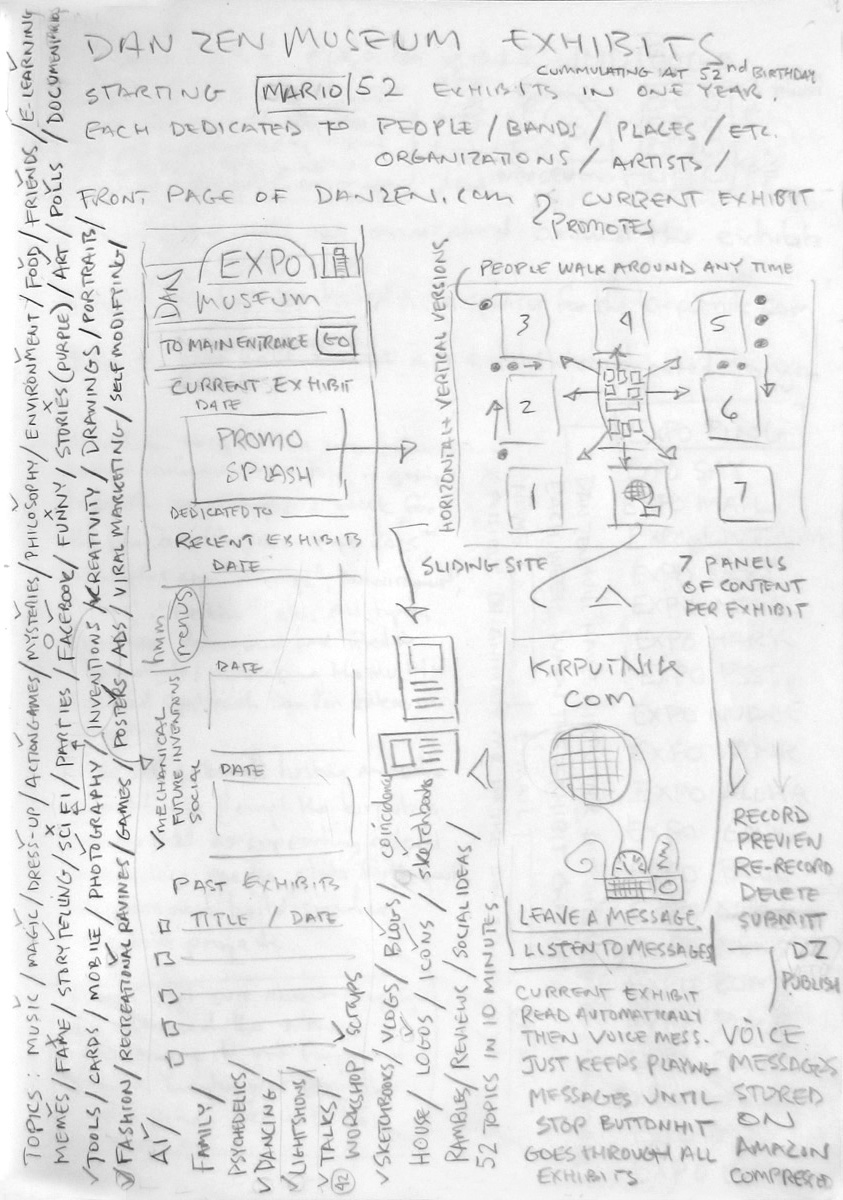 DAN ZEN MUSEUM EXHIBITS
CUMMULATING AT 52nd BIRTHDAY
STARTING MARIO/52 EXHIBITS IN ONE YEAR.
EACH DEDICATED TO PEOPLE / BANDS / PLACES / ETC.
ORGANIZATIONS / ARTISTS /
FRONT PAGE OF DANZEN.COM CURRENT EXHIBIT
PROMOTES
DAN
EXPO
MUSEUM
TO MAIN ENTRANCE GO
CURRENT EXHIBIT
DATE
PROMO
SPLASH
DEDICATED TO
RECENT EXHIBITS
DATE
hmm
menus
DATE
DATE
PAST EXHIBITS
TITLE / DATE
HORIZONTAL + VERTICAL VERSIONS
PEOPLE WALK AROUND ANY TIME
3 4 5
2 6
1 7
SLIDING SITE
7 PANELS
OF CONTENT
PER EXHIBIT
KIRPUTNIK
COM
LEAVE A MESSAGE
LISTEN TO MESSAGES
RECORD
PREVIEW
RE-RECORD
DELETE
SUBMITT
DZ
PUBLISH
CURRENT EXHIBIT
READ AUTOMATICALLY
THEN VOICE MESS.
JUST KEEPS PLAYING
MESSAGES UNTIL
STOP BUTTON HIT
GOES THROUGH ALL
EXHIBITS
VOICE
MESSAGES
STORED
ON
AMAZON
COMPRESSED
TOPICS : MUSIC / MAGIC / DRESS-UP / ACTION GAMES / MYSTERIES / PHILOSOPHY / ENVIRONMENT / FOOD / FRIENDS / E-LEARNING
MEMES / FAME / STORYTELLING / SCI FI / PARTIES / FACEBOOK / FUNNY / STORIES (PURPLE) / ART / POLLS /
TOOLS / CARDS / MOBILE / PHOTOGRAPHY / INVENTIONS / CREATIVITY / DRAWINGS / PORTRAITS /
FASHION / RECREATIONAL RAVINES / GAMES / POSTERS / ADS / VIRAL MARKETING / SELF MODIFTING /
AI /
MECHANICAL
FUTURE INVENTIONS
SOCIAL
FAMILY /
PSYCHEDELICS
DANCING /
LIGHTSHOWS /
TALKS /
42 WORKSHOP /
SKETCHBOOKS / VLOGS / BLOGS / coincidence
HOUSE / LOGOS / ICONS / sketchbooks
RAMBLES / REVIEWS / SOCIAL IDEAS /
52 TOPICS IN 10 MINUTES